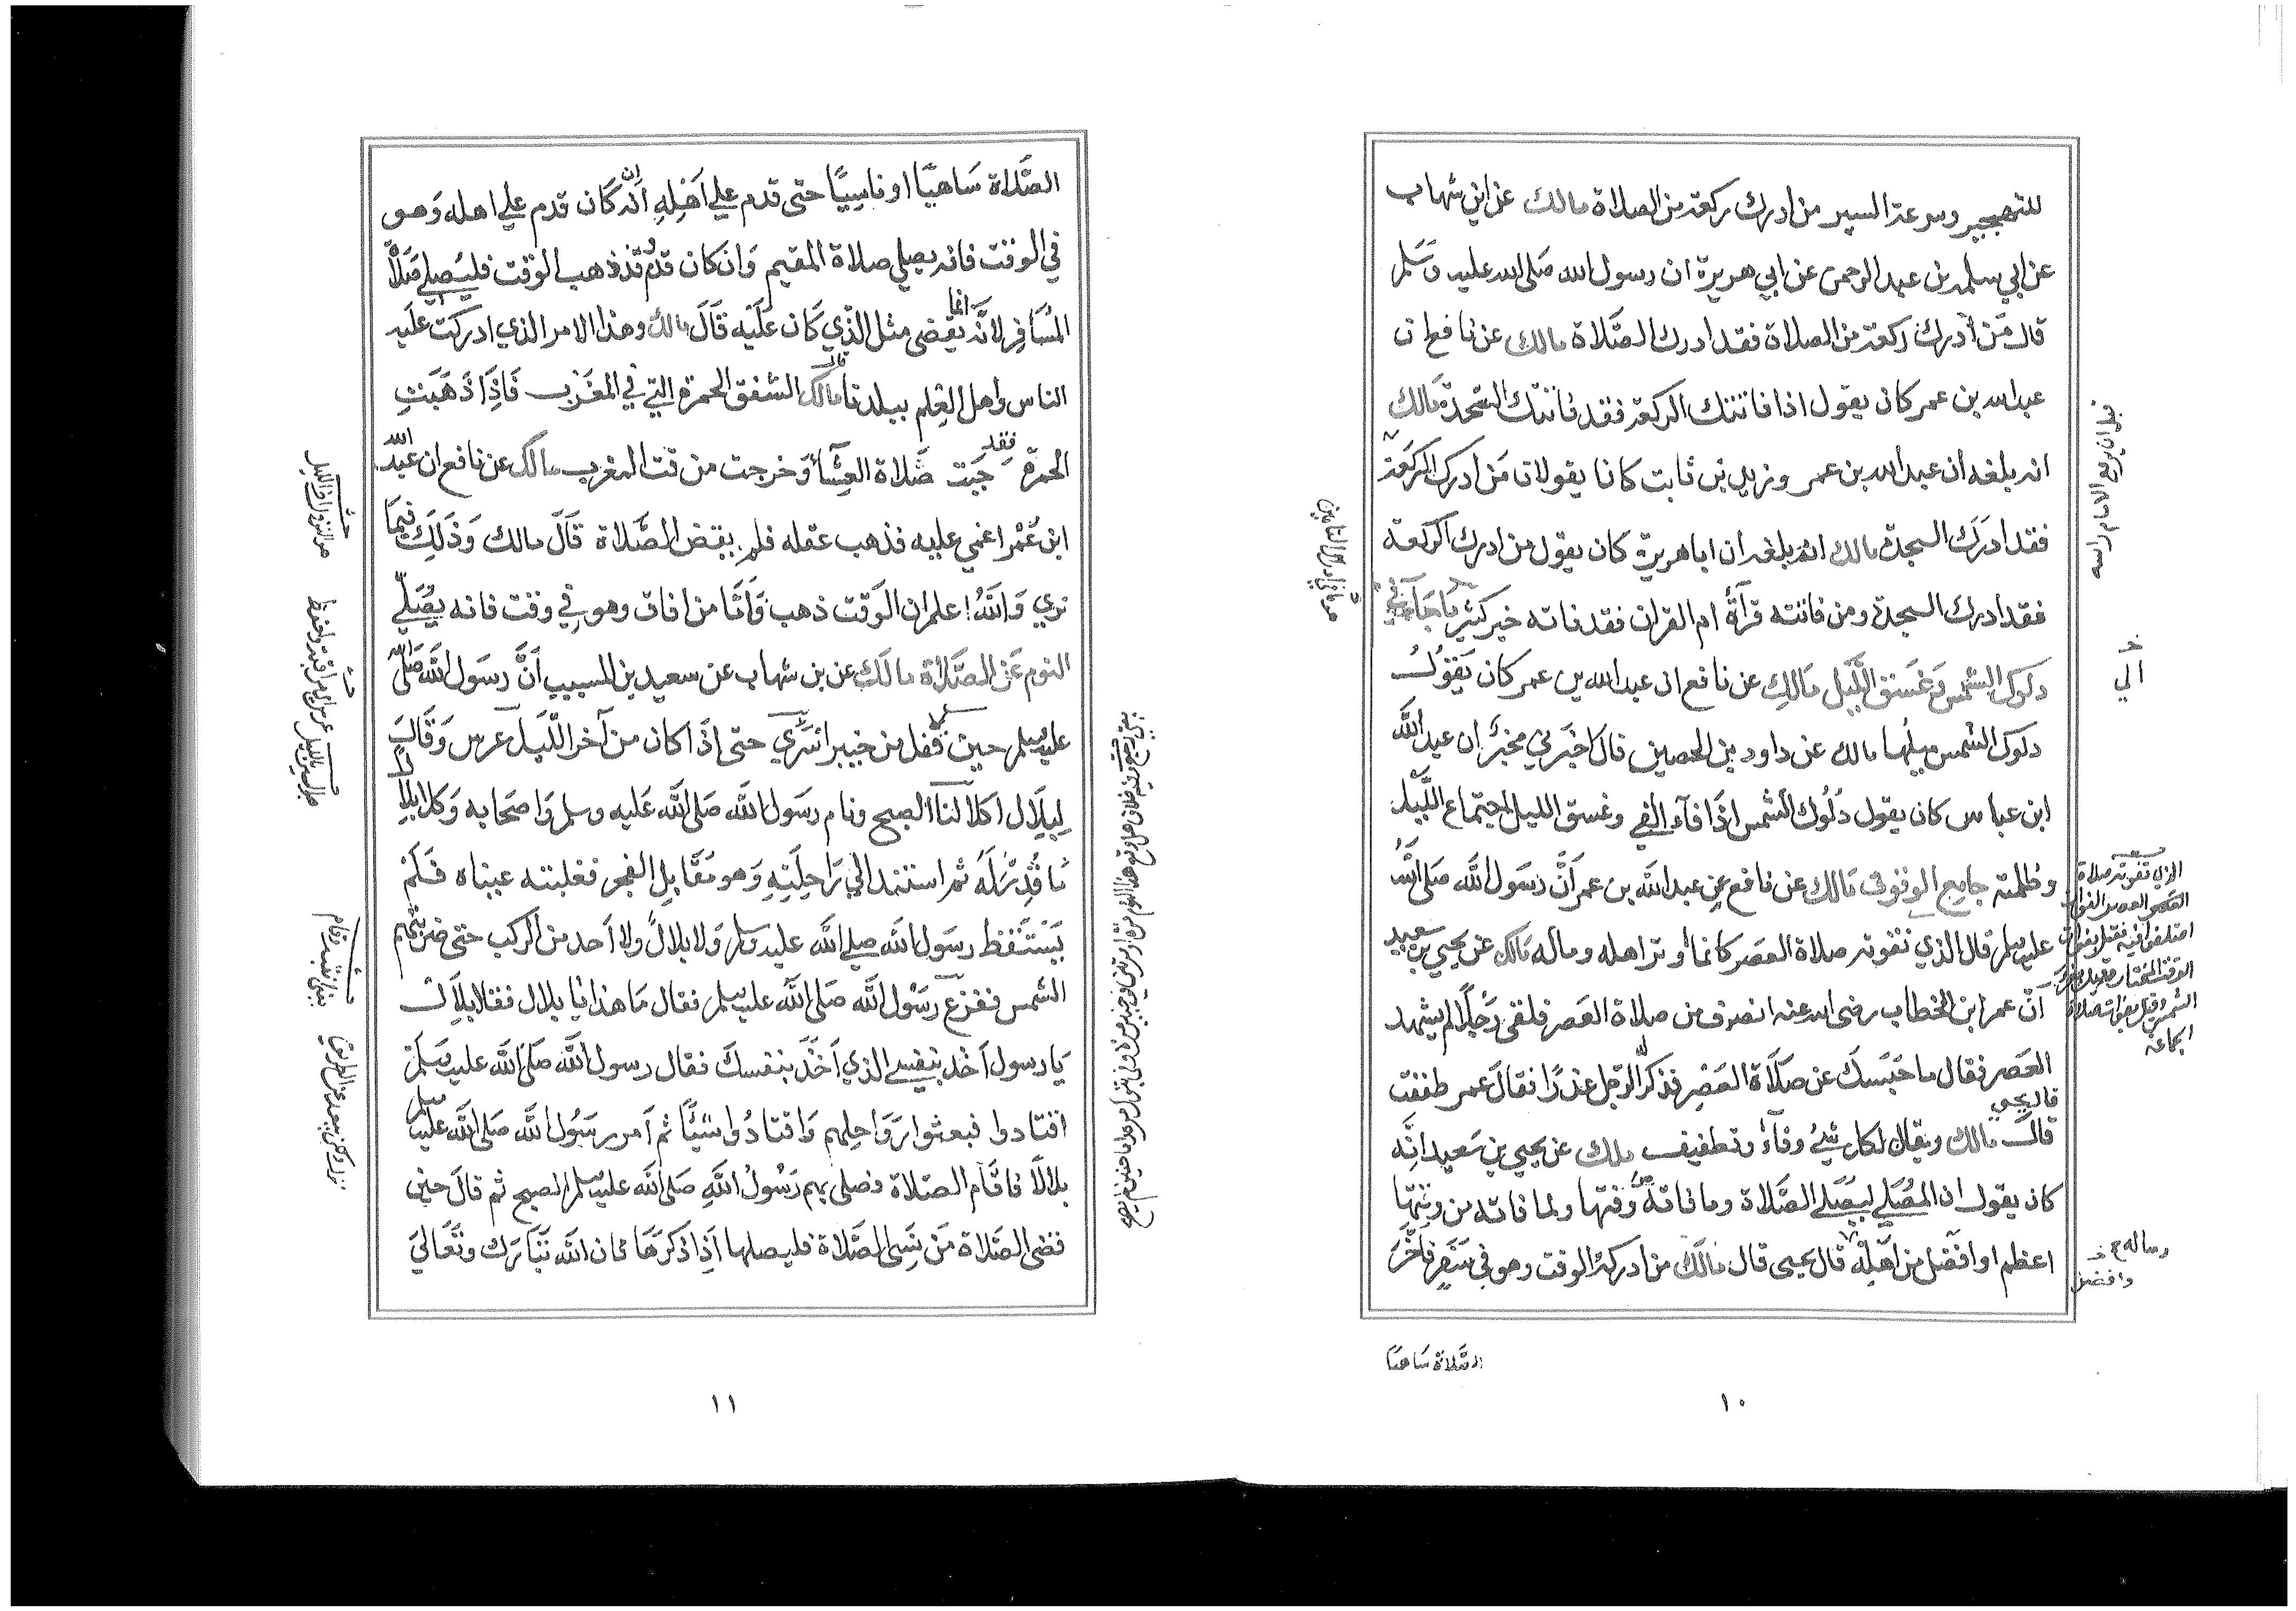 للتهجير وسرعة السير من ادرك ركعة من الصلاة مالك عن ابن شهاب
عن ابي سلمة بن عبد الرحمن عن ابي هريرة ان رسول الله صَلى الله عليه وَسَلم
قال مَن أدرك ركعة من الصلاة فقد ادرك الصَّلاة مالك عن نافع ان
عبد الله بن عمر كان يقول اذا فاتتك الركعة فقد فاتتك السَّجدة مَالك
انه بلغه ان عبد الله بن عمر وزيد بن ثابت كانا يقولان مَن ادرك الركعة
فقد ادرَكَ السجدة مالك انه بلغه ان ابا هريرة كان يقول من ادرك الركعة
فقد ادرك السجدة ومن فاتته قرآءة ام القران فقد فاته خير كثير مَا جَآء في
دلوك الشمس وَغَسَق اللَّيل مَالك عن نافع ان عبد الله بن عمر كان يَقوُلُ
دلوك الشمس ميلُها مالك عن داود بن الحصين قال اخبَرني مخبرٌ ان عبد الله
ابن عباس كان يقول دُلُوك الشمس اذَا فآء الفي وغسق الليل اجتماع اللَّيل
وظلمته جامع الوقوت مَالك عن نافع عن عبد الله بن عمر أنَّ رسَول الله صَلى الله
عليه وسلم قال الذي تفوته صلاة العَصر كانمأ وتر اهله وماله مَالك عن يحيي بن سعيد
أنّ عمر ابن الخطاب رضى الله عنه انصرف من صلاة العَصر فلقى رَجلاً لم يشهد
العَصر فقال ما حَبَسَك عن صَلَاة العَصْر فذكر له الرّجل عذرًا فقالَ عمر طففت
قال يحيي
قال مالك ويقال لكل شيء وفآءٌ وتطفيف ملك عن يحيي بن سَعيد انّه
كان يقول ان المُصَلي ليصَلي الصَّلاة وما فاته وَقتها ولما فاته من وقتها
اعظم او افضل من اهْله قال يحيى قال مَالك من ادركهُ الوقت وهو في سَفر فأخَّرَ
الي
الذي تفوته صلاة
الجماعة
رساله ع
وافضل
الصَّلاة سَاهيًا
١٠
الصَّلاة سَاهيًا او ناسِيًا حتى قدم علي اَهْلِهِ اَنه ان كَان قدم علي اهله وَهو
في الوقت فانه يصلي صلاة المقيم وَان كان قدم وقد ذهب الوقت فليُصلي صَلَاة
المُسَافِر لانَّه انما يقضى مثل الذي كَان عَلَيْه قَالَ مالك وهذا الامر الذي ادركت عَليه
الناس وَاهل العِلم ببلدنا قال مَالك الشفق الحمرة التي في المغَرْب فَاذَا ذَهَبَتِ
الحمرة فقد وَجَبَت صَلاة العِشَآء وَخرجت من وقت المغرب مالك عن نافع ان عبد الله
ابن عُمر اغمي عليه فذهب عقله فلم يقض الصَّلاة قَالَ مالك وَذَلِكَ فيمَا
نري وَاللهُ اعلم ان الوَقت ذهب وَاَمَّا من افاق وهو في وقت فانه يُصَلّي
النوم عَن الصَّلَاة مالَك عن بن شهاب عن سعيد بن المسيب اَنَّ رسَول الله صَلى الله
عليه وسلم حين قفل من خيبر اسْرَي حتى إذَا كان من آخر اللّيَل عرس وَقَالَ
لِبِلَال اكلأ لنَا الصبح ونام رسَول الله صَلى الله عَليه وسلم وَاصحَابه وَكلا بلال
مَا قُدِّرَ لَهُ ثم استند الي رَاحِلَتِهِ وَهو مُقَابل الفجر فغلبته عيناه فَلَمْ
يَسْتَيْقظ رسَول الله صلي الله عليه وسلم وَلا بلالٌ ولا اَحد من الركب حتى ضربتهم
الشمس ففزعَ رسَول الله صَلى الله عليه وسلم فقال مَا هذا يا بلال فقال بلال
يَا رسول اَخذ بنفسي الذي اَخَذَ بنفسكَ فقال رسول الله صَلَى الله عليه وَسَلم
اقتادوا فبعثوا رَوَاحِلهم وَاقتادُوا شيئًا ثم اَمر رسَول الله صَلى الله عليه وسلم
بلالًا فاقَام الصَلاة فصلى بهم رَسُولُ اللهِ صَلى الله عليه وسلم الصبح ثم قالَ حين
قضى الصَّلاة مَن نِسَى الصَّلاة فليصلها اذَا ذكَرَهَا فان الله تَبَارَك وتَعَالىَ
١١